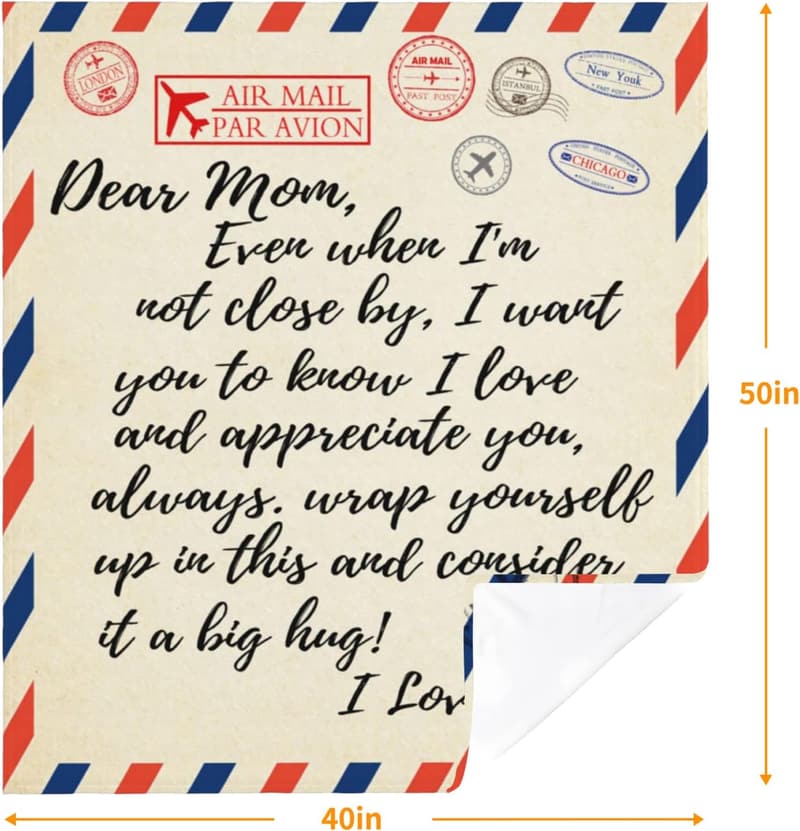 LONDON
AIR MAIL
PAR AVION
AIR MAIL
FAST POST
ISTANBUL
UNITED STATES POSTAGE
New Youk
FAST POST
UNITED STATES POSTAGE
CHICAGO
POST SERVICE
Dear Mom,
Even when I'm
not close by, I want
you to know I love
and appreciate you,
always. wrap yourself
up in this and consider
it a big hug!
I Lov
50in
40in